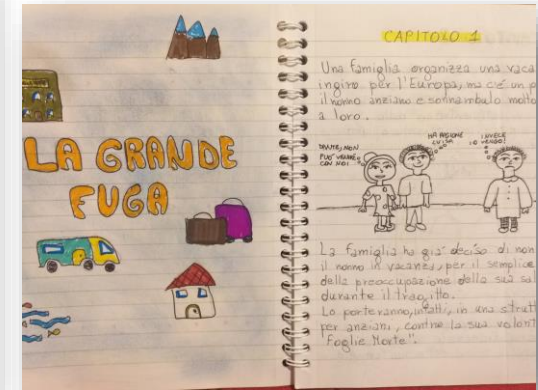 LA GRANDE
FUGA
CAPITOLO 1
Una famiglia organizza una vaca
in giro per l'Europa, ma c'è un p
il nonno anziano e sonnambulo molto
a loro.
DANTE, NON
PUÒ VENIRE
CON NOI!
HA RAGIONE
LUISA
INVECE
IO VENGO!
La famiglia ha già deciso di non
il nonno in vacanza, per il semplice
della preoccupazione della sua sal
durante il tragitto.
Lo porteranno, infatti, in una strutt
per anziani, contro la sua volont
"Foglie Morte".